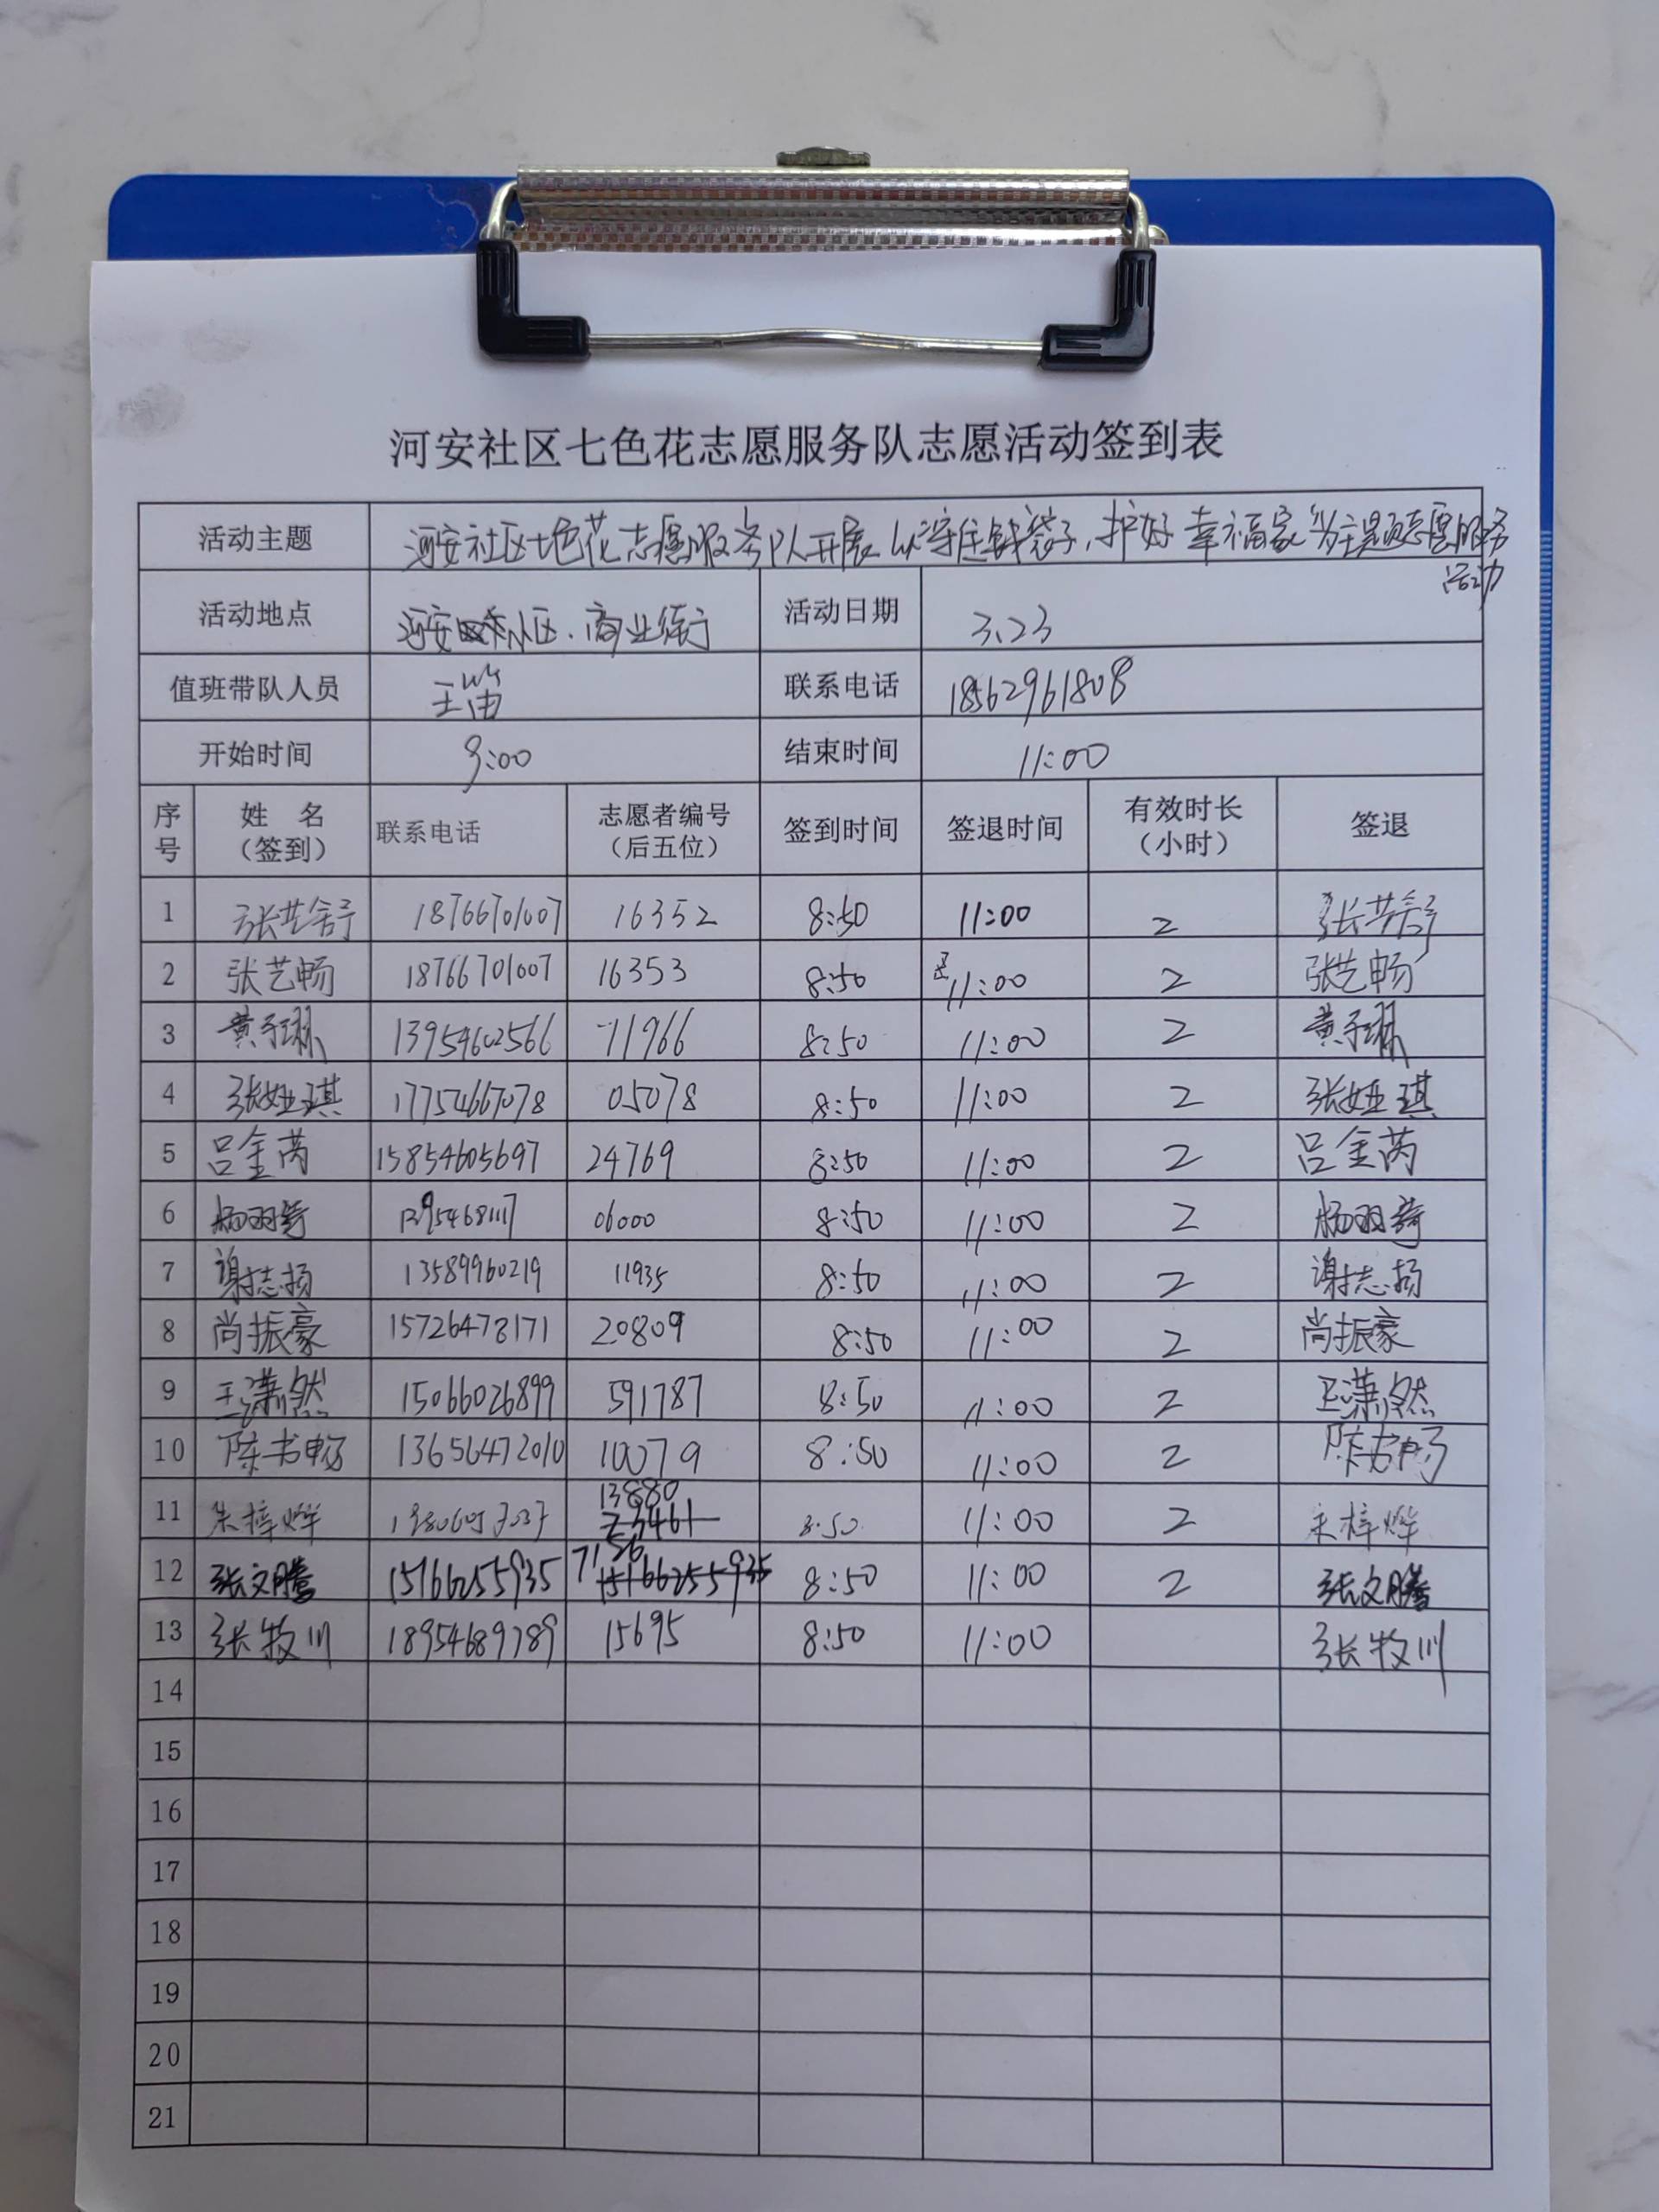 河安社区七色花志愿服务队志愿活动签到表
活动主题 河安社区七色花志愿服务队开展以"守住钱袋子,护好幸福家"为主题志愿服务
活动
活动地点 河安小区、商业街 活动日期 3.23
值班带队人员 王笛 联系电话 18562961808
开始时间 9:00 结束时间 11:00
序号 姓 名（签到） 联系电话 志愿者编号（后五位） 签到时间 签退时间 有效时长（小时） 签退
1 张芸舒 18766701007 16352 8:50 11:00 2 张芸舒
2 张艺畅 18766701007 16353 8:50 11:00 2 张艺畅
3 黄子琳 13954602566 11966 8:50 11:00 2 黄子琳
4 张娅琪 17754667078 05078 8:50 11:00 2 张娅琪
5 吕金芮 15854605697 24769 8:50 11:00 2 吕金芮
6 杨羽琦 06000 8:50 11:00 2 杨羽琦
7 谢志扬 13589960219 11935 8:50 11:00 2 谢志扬
8 尚振豪 15726478171 20809 8:50 11:00 2 尚振豪
9 王潇然 15066026899 591787 8:50 11:00 2 王潇然
10 陈书畅 13656472010 10079 8:50 11:00 2 陈书畅
11 朱梓烨 13880 23461 8:50 11:00 2 朱梓烨
12 张文腾 15166255935 7156 15166255935 8:50 11:00 2 张文腾
13 张牧川 18954689789 15695 8:50 11:00 张牧川
14
15
16
17
18
19
20
21